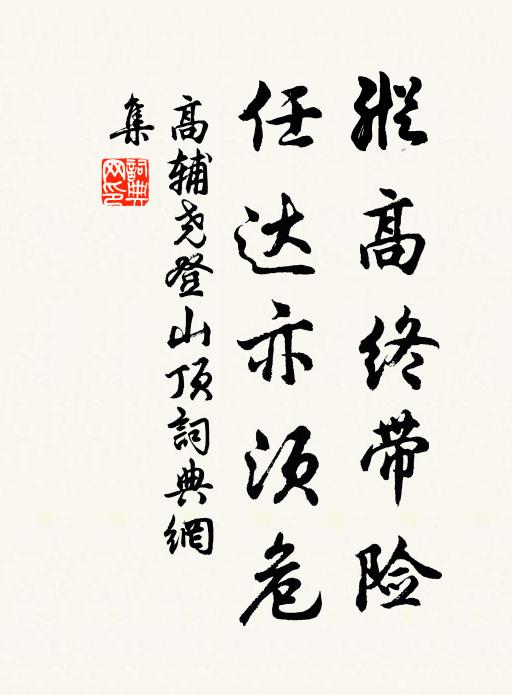 縱高终带险
任达亦须危
高辅尧登山顶詞典網
集
詞典网印